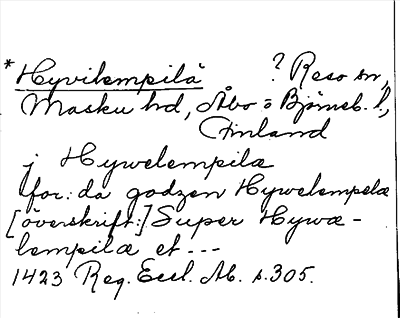 * Hyvilempilä ? Reso sn,
Masku hd, Åbo o Björneb. l.,
Finland
j Hywelempilæ
for: da godzen Hywelempelæ
[överskrift:] Super Hywæ-
lempilæ et ---
1423 Reg. Eccl. Ab. s. 305.